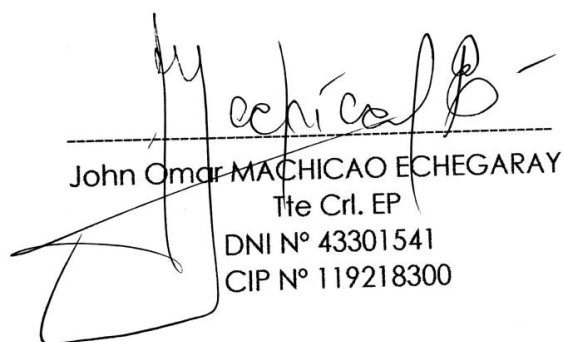 Machicao E
John Omar MACHICAO ECHEGARAY
Tte Crl. EP
DNI Nº 43301541
CIP Nº 119218300